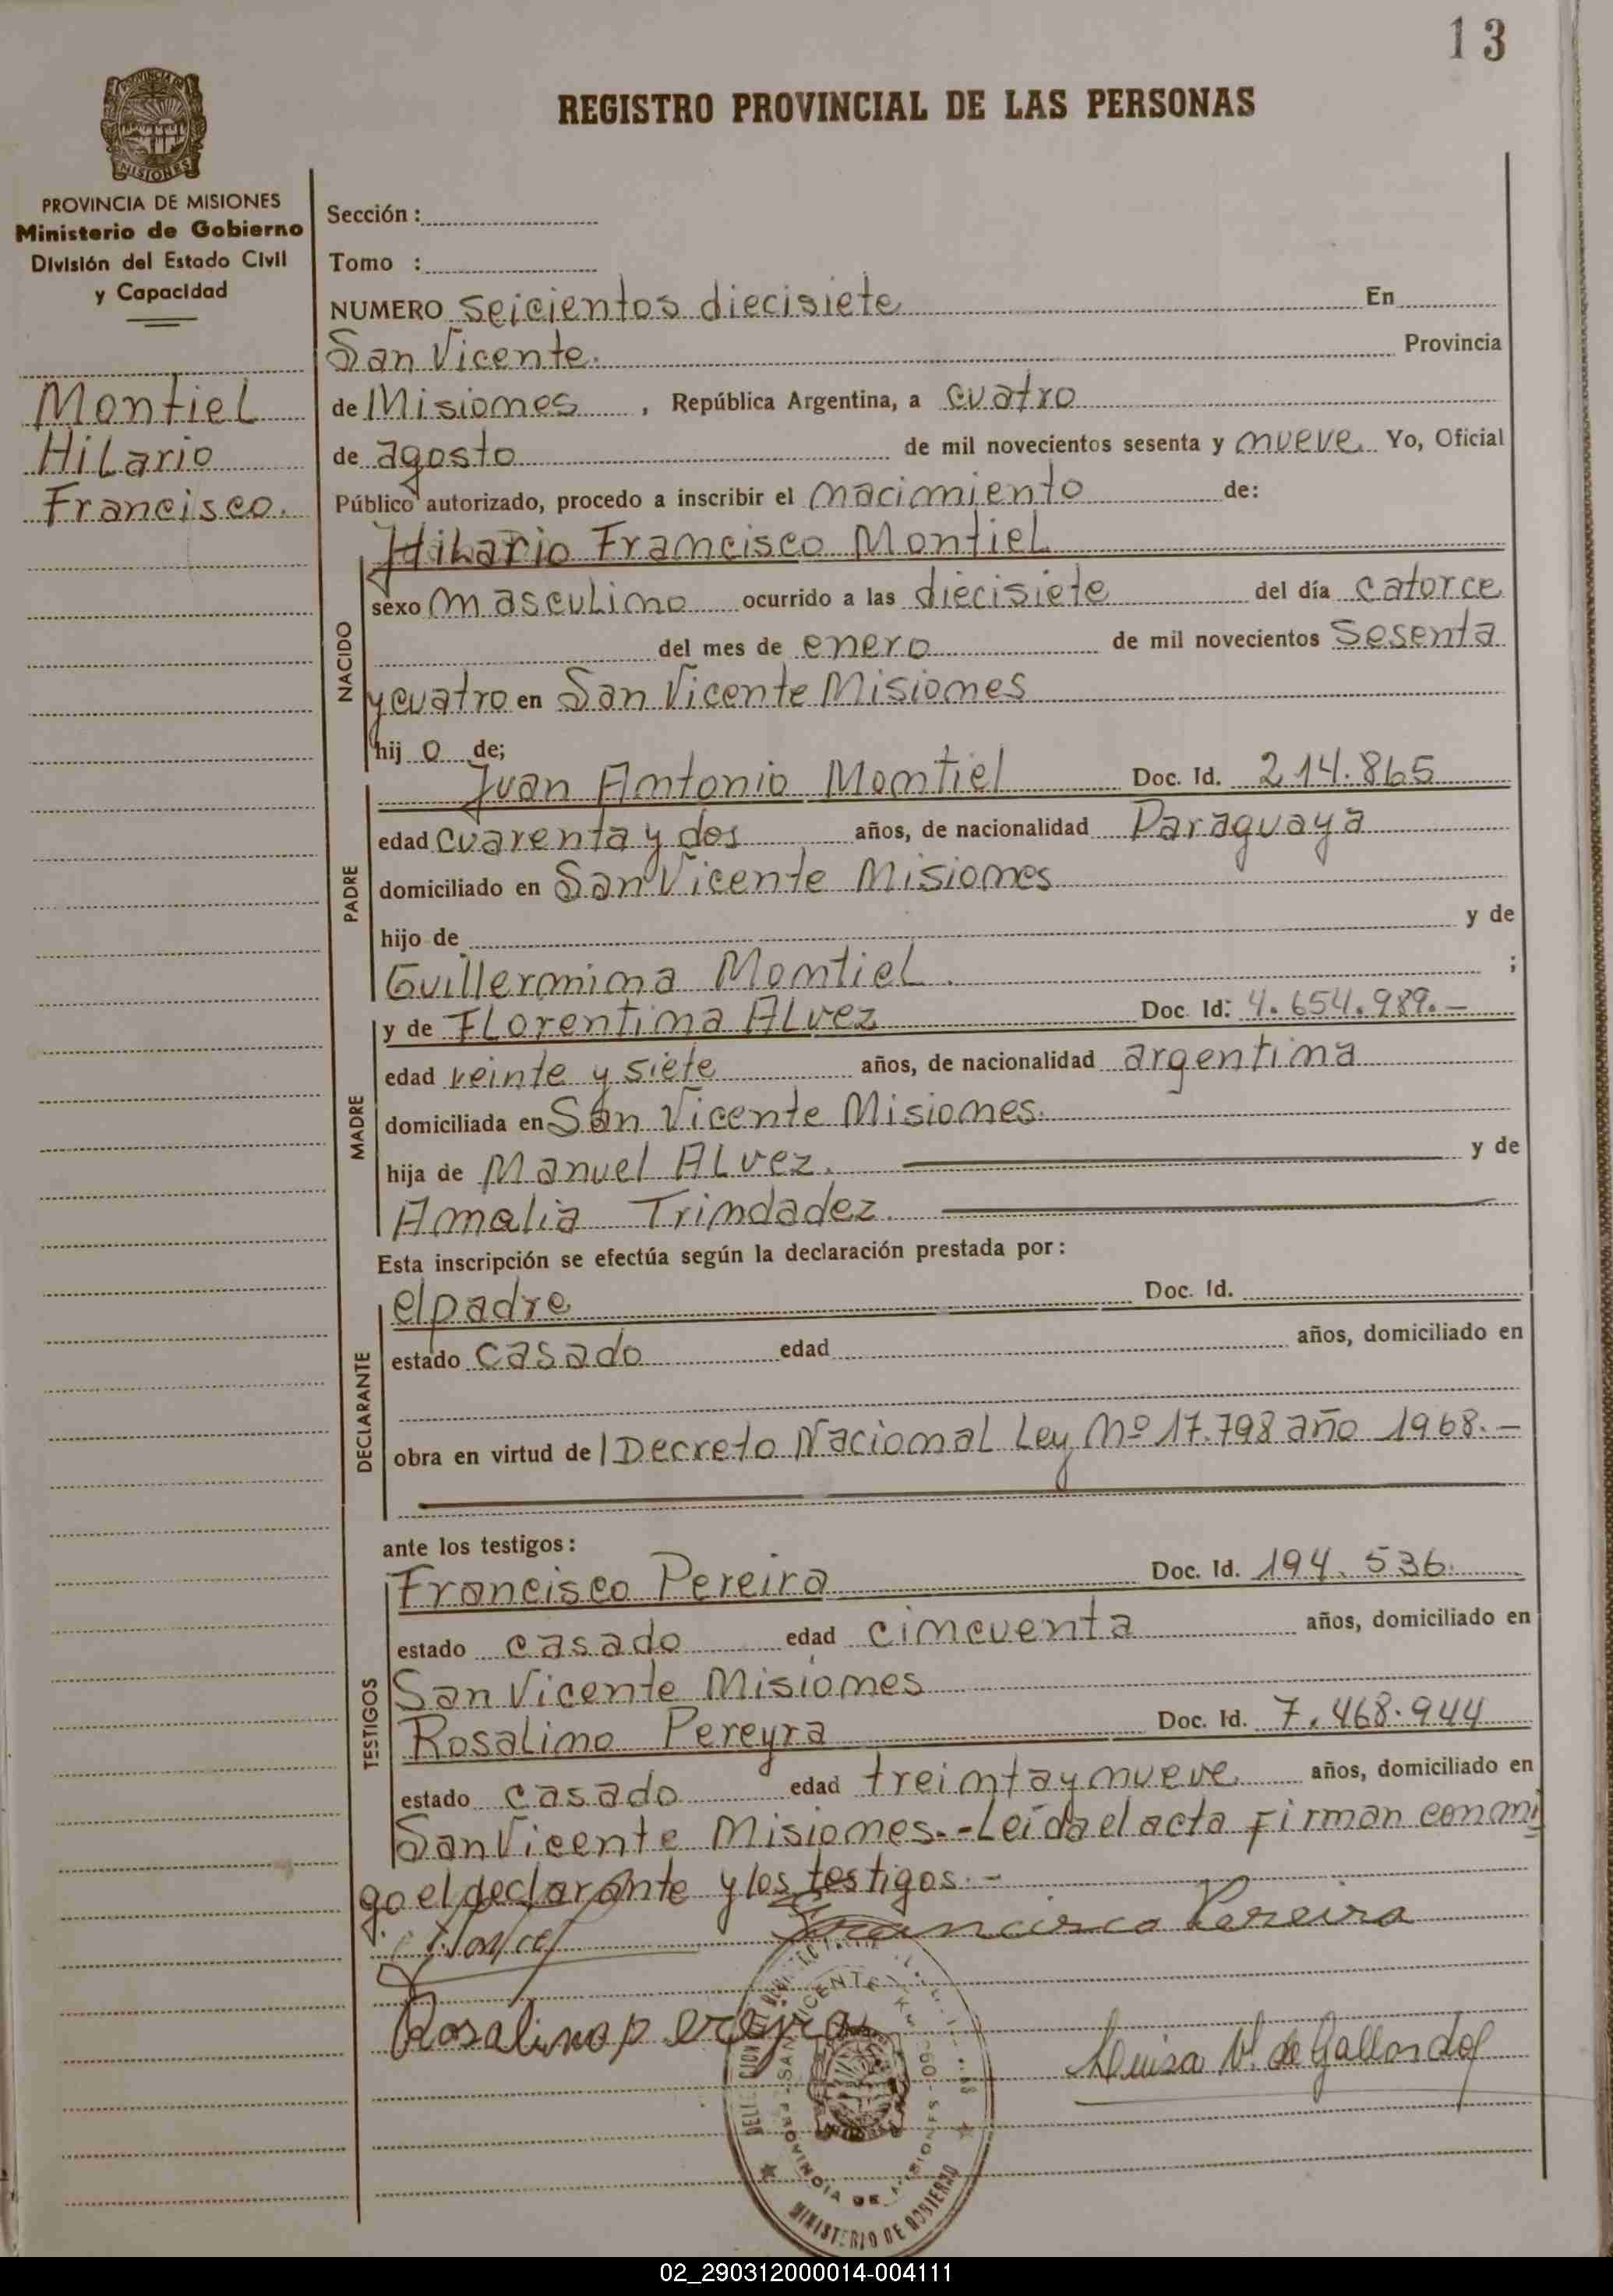 13
REGISTRO PROVINCIAL DE LAS PERSONAS
MISIONES
PROVINCIA DE MISIONES
Ministerio de Gobierno
División del Estado Civil
y Capacidad
Montiel
Hilario
Francisco.
Sección :
Tomo :
NUMERO seicientos diecisiete En
San Vicente. Provincia
de Misiones , República Argentina, a cuatro
de agosto de mil novecientos sesenta y nueve Yo, Oficial
Público autorizado, procedo a inscribir el nacimiento de:
NACIDO
Hilario Francisco Montiel
sexo masculino ocurrido a las diecisiete del día catorce
del mes de enero de mil novecientos sesenta
y cuatro en San Vicente Misiones
hij o de;
PADRE
Juan Antonio Montiel Doc. Id. 214.865
edad cuarenta y dos años, de nacionalidad Paraguaya
domiciliado en San Vicente Misiones
hijo de y de
Guillermina Montiel. ;
MADRE
y de Florentina Alvez Doc. Id: 4.654.989.-
edad veinte y siete años, de nacionalidad argentina
domiciliada en San Vicente Misiones.
hija de Manuel Alvez. y de
Amalia Trindadez.
Esta inscripción se efectúa según la declaración prestada por :
DECLARANTE
el padre Doc. Id.
estado casado edad años, domiciliado en
obra en virtud de l Decreto Nacional Ley Nº 17.798 año 1968.-
ante los testigos :
TESTIGOS
Francisco Pereira Doc. Id. 194.536.
estado casado edad cincuenta años, domiciliado en
San Vicente Misiones
Rosalino Pereyra Doc. Id. 7.468.944
estado casado edad treinta y nueve años, domiciliado en
San Vicente Misiones.-Leída el acta firman conmi
go el declarante y los testigos.-
Francisco Pereira
Rosalino pereyra
Luisa V. de Gallardo
SAN VICENTE
PROVINCIA DE MISIONES
MINISTERIO DE GOBIERNO
02_290312000014-004111